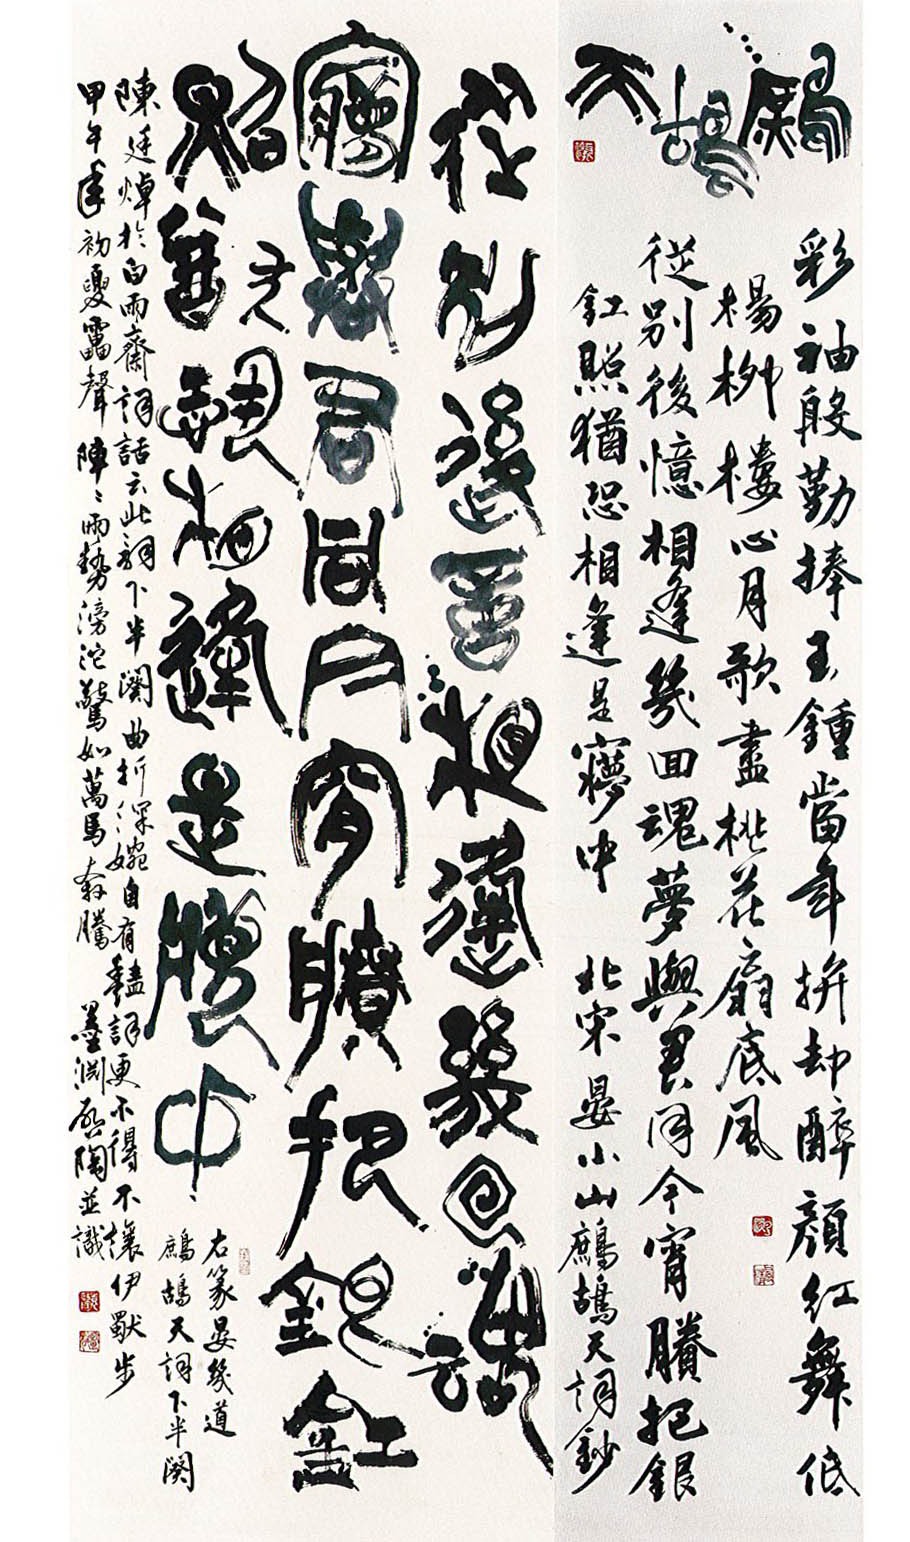 鷓鴣天
彩袖殷勤捧玉鍾當年拚却醉顏紅舞低
楊柳樓心月歌盡桃花扇底風
從別後憶相逢幾回魂夢與君同今宵賸把銀
釭照猶恐相逢是夢中 北宋晏小山鷓鴣天詞鈔
從別後憶相逢幾回魂
夢與君同今宵賸把銀釭
照猶恐相逢是夢中
右篆晏幾道
鷓鴣天詞下半闋
陳廷焯於白雨齋詞話云此詞下半闋曲折深婉自有艷詞更不得不讓伊獨步
甲午年初夏雷聲陣々雨勢滂沱驚如萬馬奔騰 墨淵陶並識